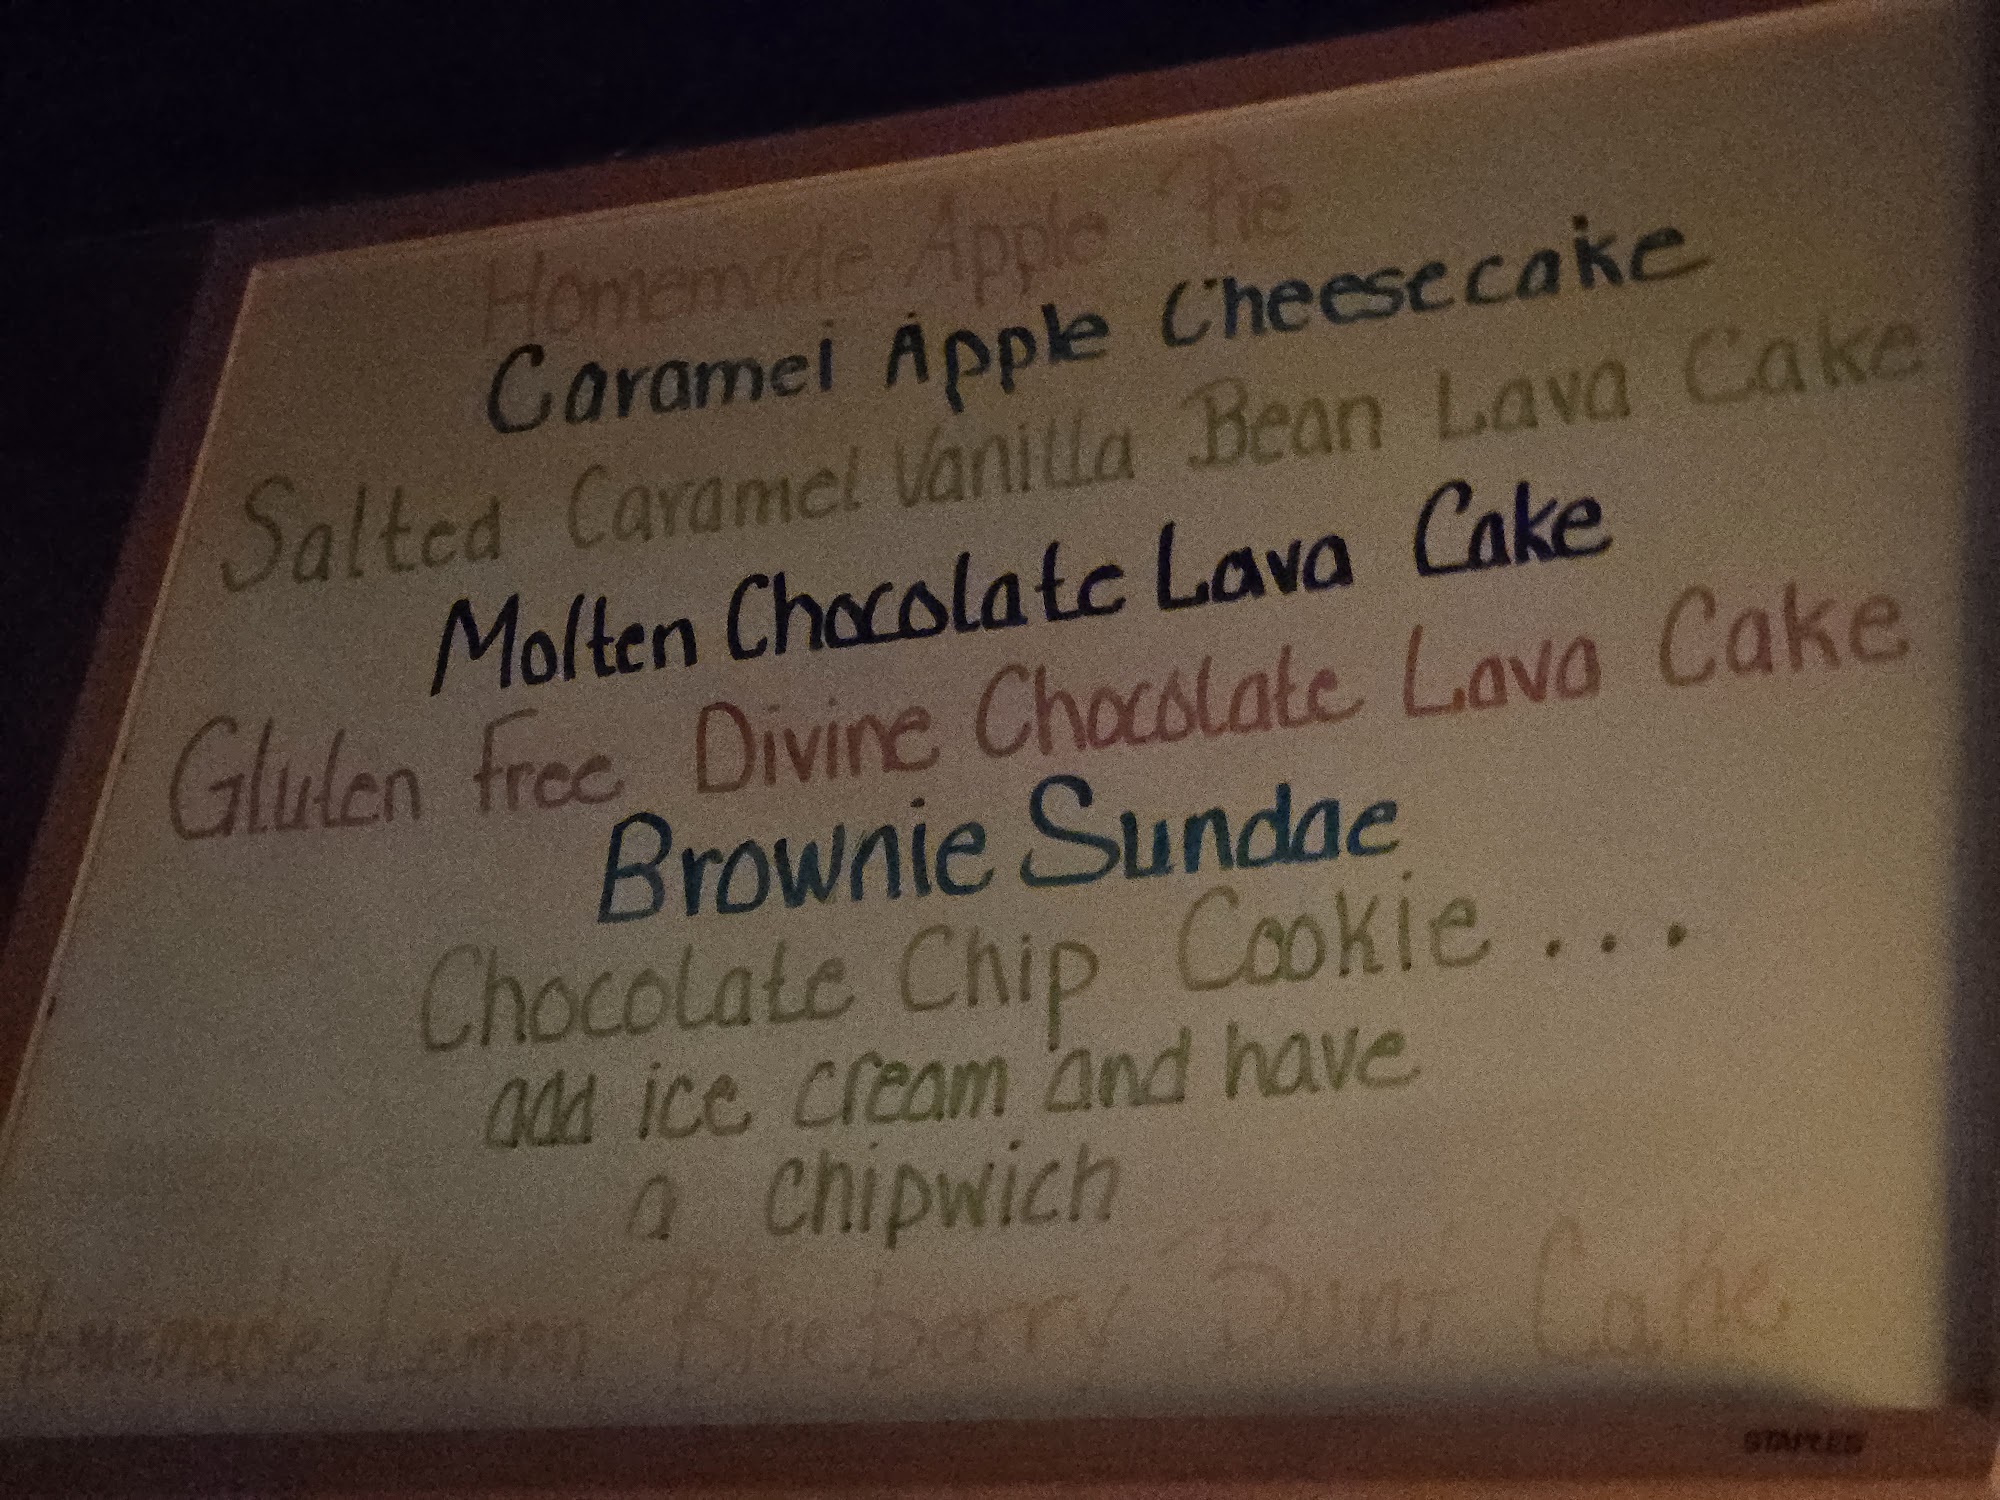 Homemade Apple Pie
Caramel Apple Cheesecake
Salted Caramel Vanilla Bean Lava Cake
Molten Chocolate Lava Cake
Gluten Free Divine Chocolate Lava Cake
Brownie Sundae
Chocolate Chip Cookie ...
add ice cream and have
a chipwich
Homemade Lemon Blueberry Bunt Cake
STAPLES